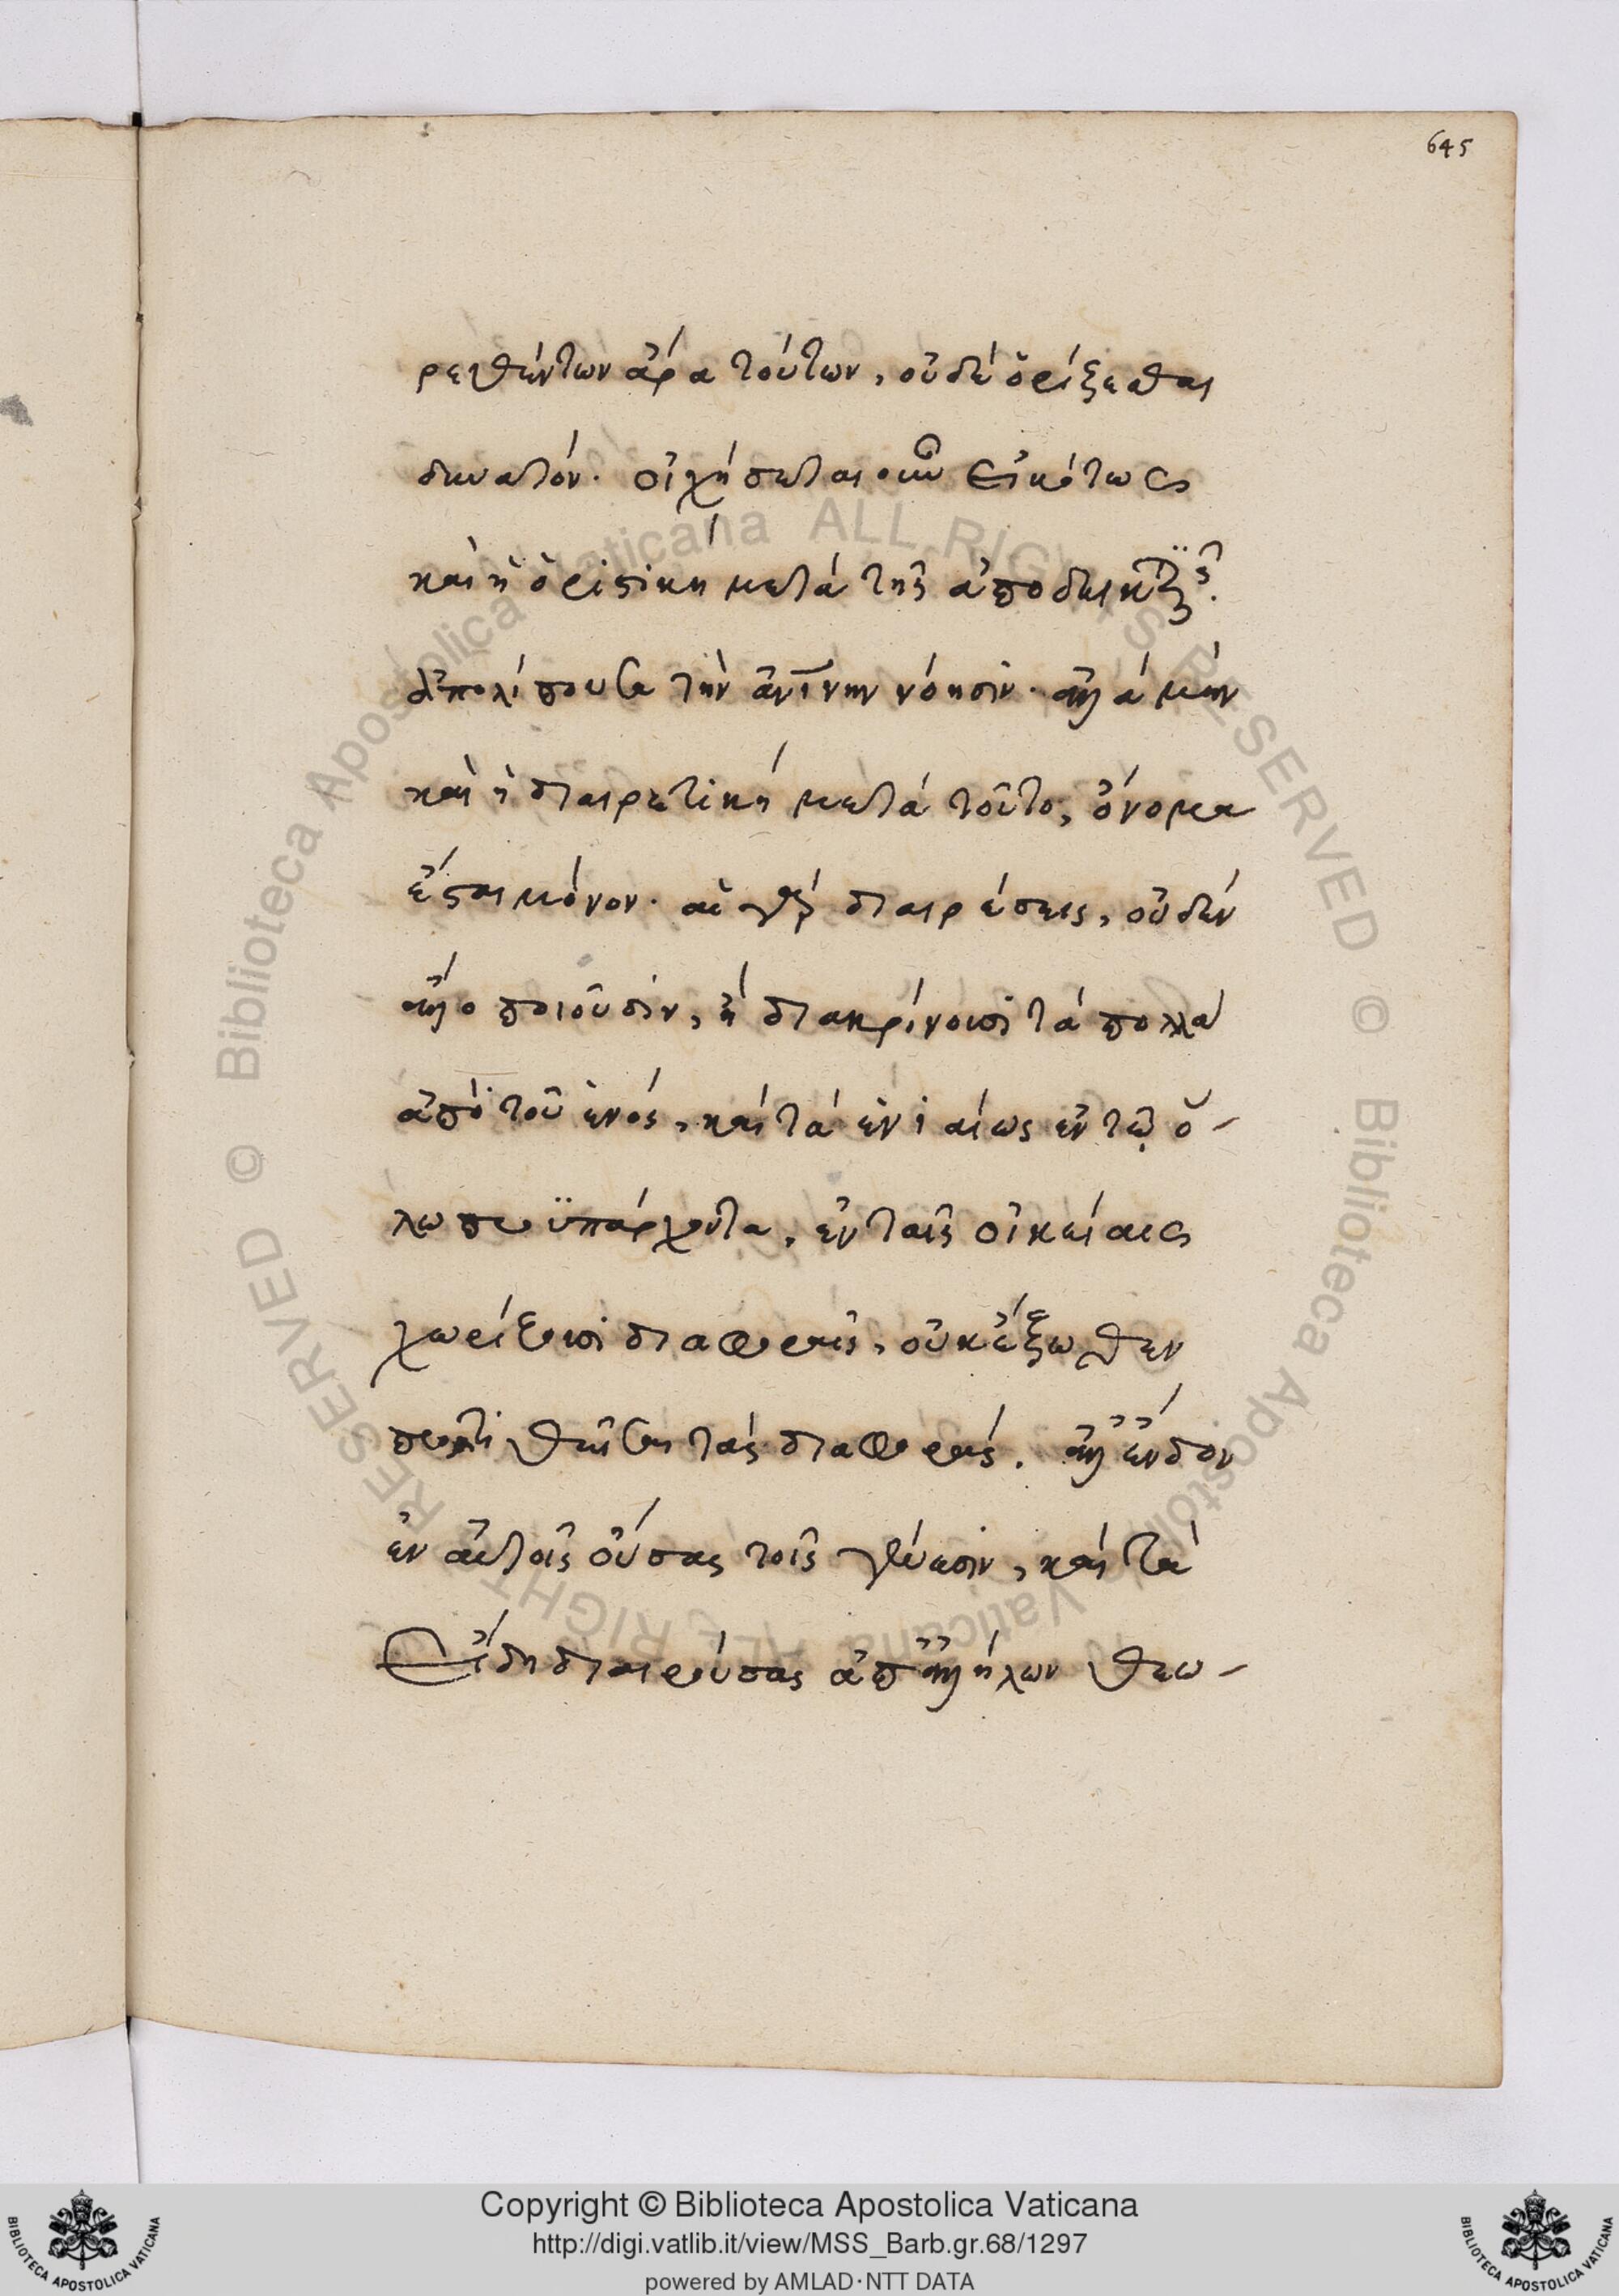 645
ρεθέντων ἄρα τούτων, οὐδὲ ὁρίζεσθαι
δυνατόν. οἰχήσεται οὖν εἰκότως
καὶ ἡ ὁριστικὴ μετὰ τῆς ἀποδεικτικῆς.
ἀπολίποῦσα τὴν ἀνίνην νόησιν. ἀλλὰ μὴν
καὶ ἡ διαιρετικὴ μετὰ τοῦτο, ὄνομα
ἔσται μόνον. αἱ γὰρ διαιρέσεις, οὐδὲν
ἄλλο ποιοῦσιν, ἢ διακρίνουσι τὰ πολλὰ
ἀπὸ τοῦ ἑνός, καὶ τὰ ἑνιαίως ἐν τῷ ὅ-
λῳ προϋπάρχοντα, ἐν ταῖς οἰκείαις
χωρίζουσι διαφοραῖς, οὐκ ἔξωθεν
προστιθεῖσαι τὰς διαφοράς. ἀλλ' ἔνδον
ἐν αὐτοῖς οὔσας τοῖς γένεσιν, καὶ τὰ
εἴδη διαιρούσας ἀπ' ἀλλήλων θεω-
Copyright © Biblioteca Apostolica Vaticana
http://digi.vatlib.it/view/MSS_Barb.gr.68/1297
powered by AMLAD·NTT DATA
BIBLIOTECA APOSTOLICA VATICANA
BIBLIOTECA APOSTOLICA VATICANA
© Biblioteca Apostolica Vaticana ALL RIGHTS RESERVED
© Biblioteca Apostolica Vaticana ALL RIGHTS RESERVED